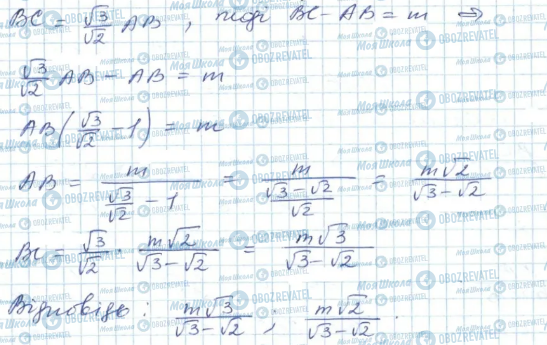 BC = √3/√2 AB, тоді BC - AB = m ⇒
√3/√2 AB - AB = m
AB(√3/√2 - 1) = m
AB = m/(√3/√2 - 1) = m/((√3 - √2)/√2) = m√2/(√3 - √2)
BC = √3/√2 · m√2/(√3 - √2) = m√3/(√3 - √2)
Відповідь: m√3/(√3 - √2); m√2/(√3 - √2).
Моя Школа
OBOZREVATEL